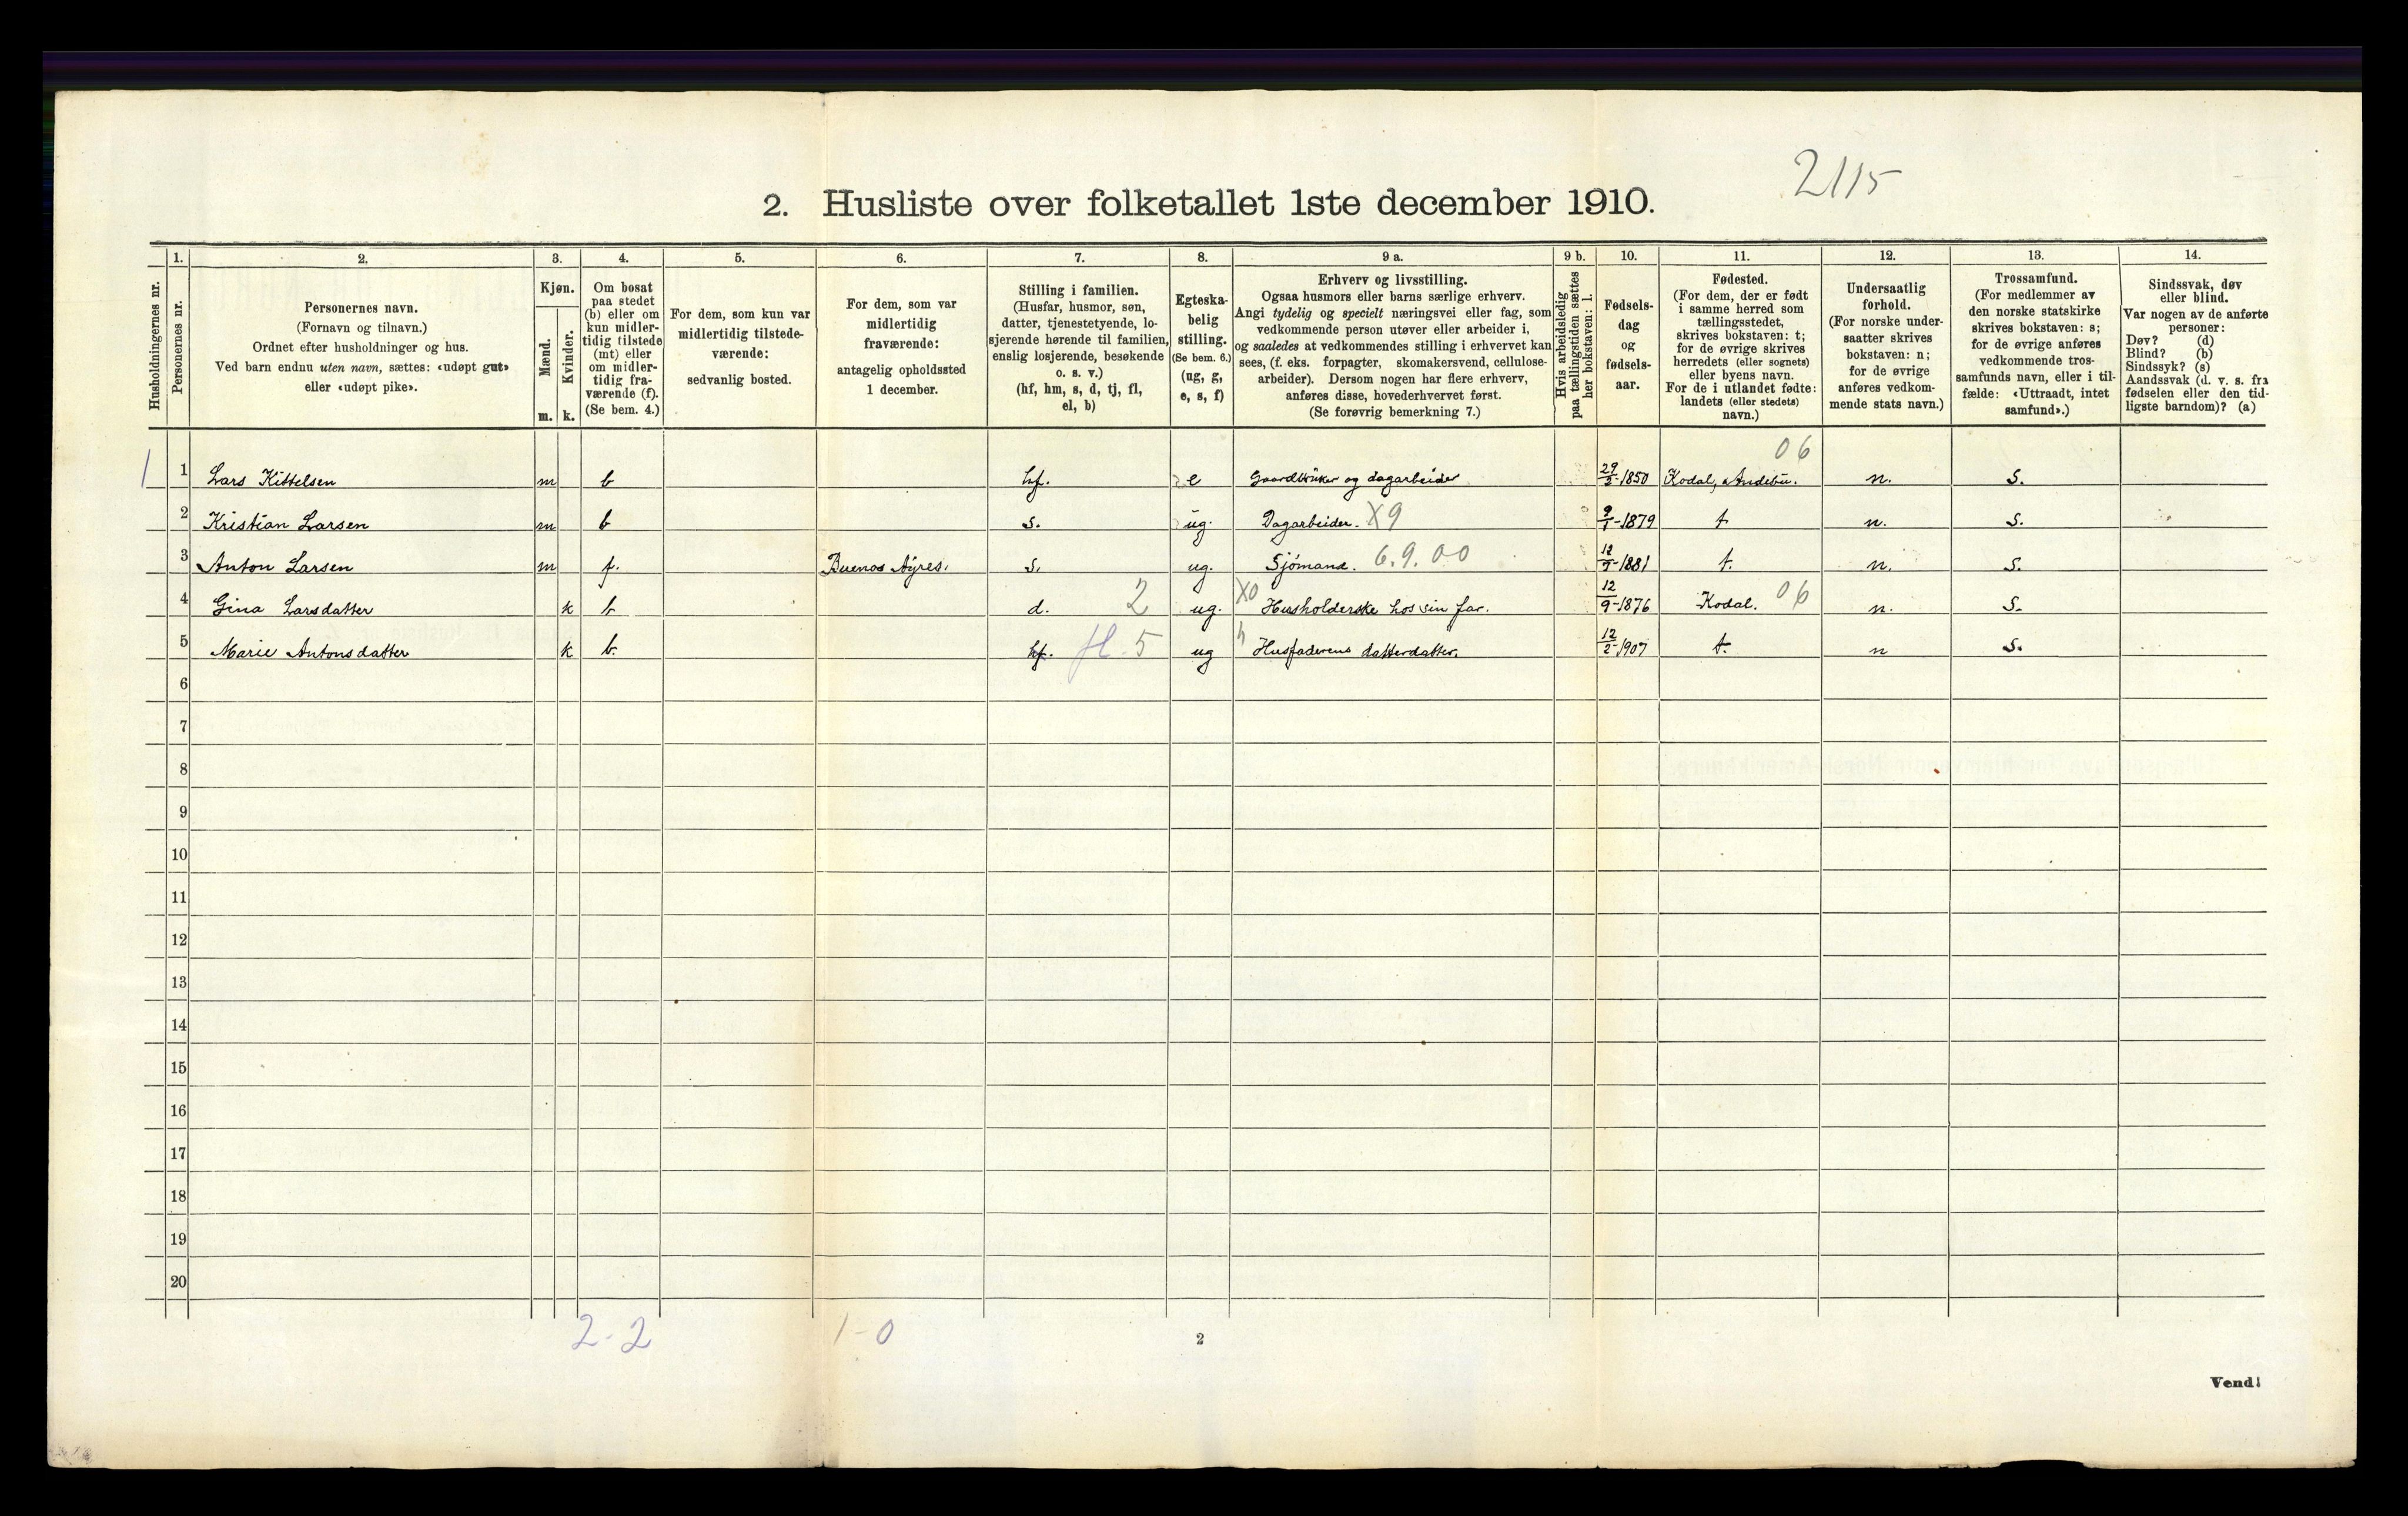 2115
2. Husliste over folketallet 1ste december 1910.
Husholdningernes nr.
1.
Personernes nr.
2.
Personernes navn.
(Fornavn og tilnavn.)
Ordnet efter husholdninger og hus.
Ved barn endnu uten navn, sættes: «udøpt gut»
eller «udøpt pike».
3.
Kjøn.
Mænd.
m.
Kvinder.
k.
4.
Om bosat
paa stedet
(b) eller om
kun midler-
tidig tilstede
(mt) eller
om midler-
tidig fra-
værende (f).
(Se bem. 4.)
5.
For dem, som kun var
midlertidig tilstede-
værende:
sedvanlig bosted.
6.
For dem, som var
midlertidig
fraværende:
antagelig opholdssted
1 december.
7.
Stilling i familien.
(Husfar, husmor, søn,
datter, tjenestetyende, lo-
sjerende hørende til familien,
enslig losjerende, besøkende
o. s. v.)
(hf, hm, s, d, tj, fl,
el, b)
8.
Egteska-
belig
stilling.
(Se bem. 6.)
(ug, g,
e, s, f)
9 a.
Erhverv og livsstilling.
Ogsaa husmors eller barns særlige erhverv.
Angi tydelig og specielt næringsvei eller fag, som
vedkommende person utøver eller arbeider i,
og saaledes at vedkommendes stilling i erhvervet kan
sees, (f. eks. forpagter, skomakersvend, cellulose-
arbeider). Dersom nogen har flere erhverv,
anføres disse, hovederhvervet først.
(Se forøvrig bemerkning 7.)
9 b.
Hvis arbeidsledig
paa tællingstiden sættes
her bokstaven: l.
10.
Fødsels-
dag
og
fødsels-
aar.
11.
Fødested.
(For dem, der er født
i samme herred som
tællingsstedet,
skrives bokstaven: t;
for de øvrige skrives
herredets (eller sognets)
eller byens navn.
For de i utlandet fødte:
landets (eller stedets)
navn.)
12.
Undersaatlig
forhold.
(For norske under-
saatter skrives
bokstaven: n;
for de øvrige
anføres vedkom-
mende stats navn.)
13.
Trossamfund.
(For medlemmer av
den norske statskirke
skrives bokstaven: s;
for de øvrige anføres
vedkommende tros-
samfunds navn, eller i til-
fælde: «Uttraadt, intet
samfund».)
14.
Sindssvak, døv
eller blind.
Var nogen av de anførte
personer:
Døv? (d)
Blind? (b)
Sindssyk? (s)
Aandssvak (d. v. s. fra
fødselen eller den tid-
ligste barndom)? (a)
06
1 1 Lars Kittelsen m b hf. e Gaardbruker og dagarbeider 29/3-1850 Kodal, Andebu. n. S.
2 Kristian Larsen m b s. ug. Dagarbeider. X9 9/1-1879 t n. S.
3 Anton Larsen m f. Buenos Ayres. s. ug. Sjømand. 6.9.00 12/5-1881 t. n. S.
4 Gina Larsdatter k b d. 2 ug. X0 Husholderske hos sin far. 12/9-1876 Kodal. 06 n. S.
5 Marie Antonsdatter k b. hf. fl. 5 ug h Husfaderens datterdatter. 12/2-1907 t. n S.
6
7
8
9
10
11
12
13
14
15
16
17
18
19
20
2-2 1-0
2
Vend!